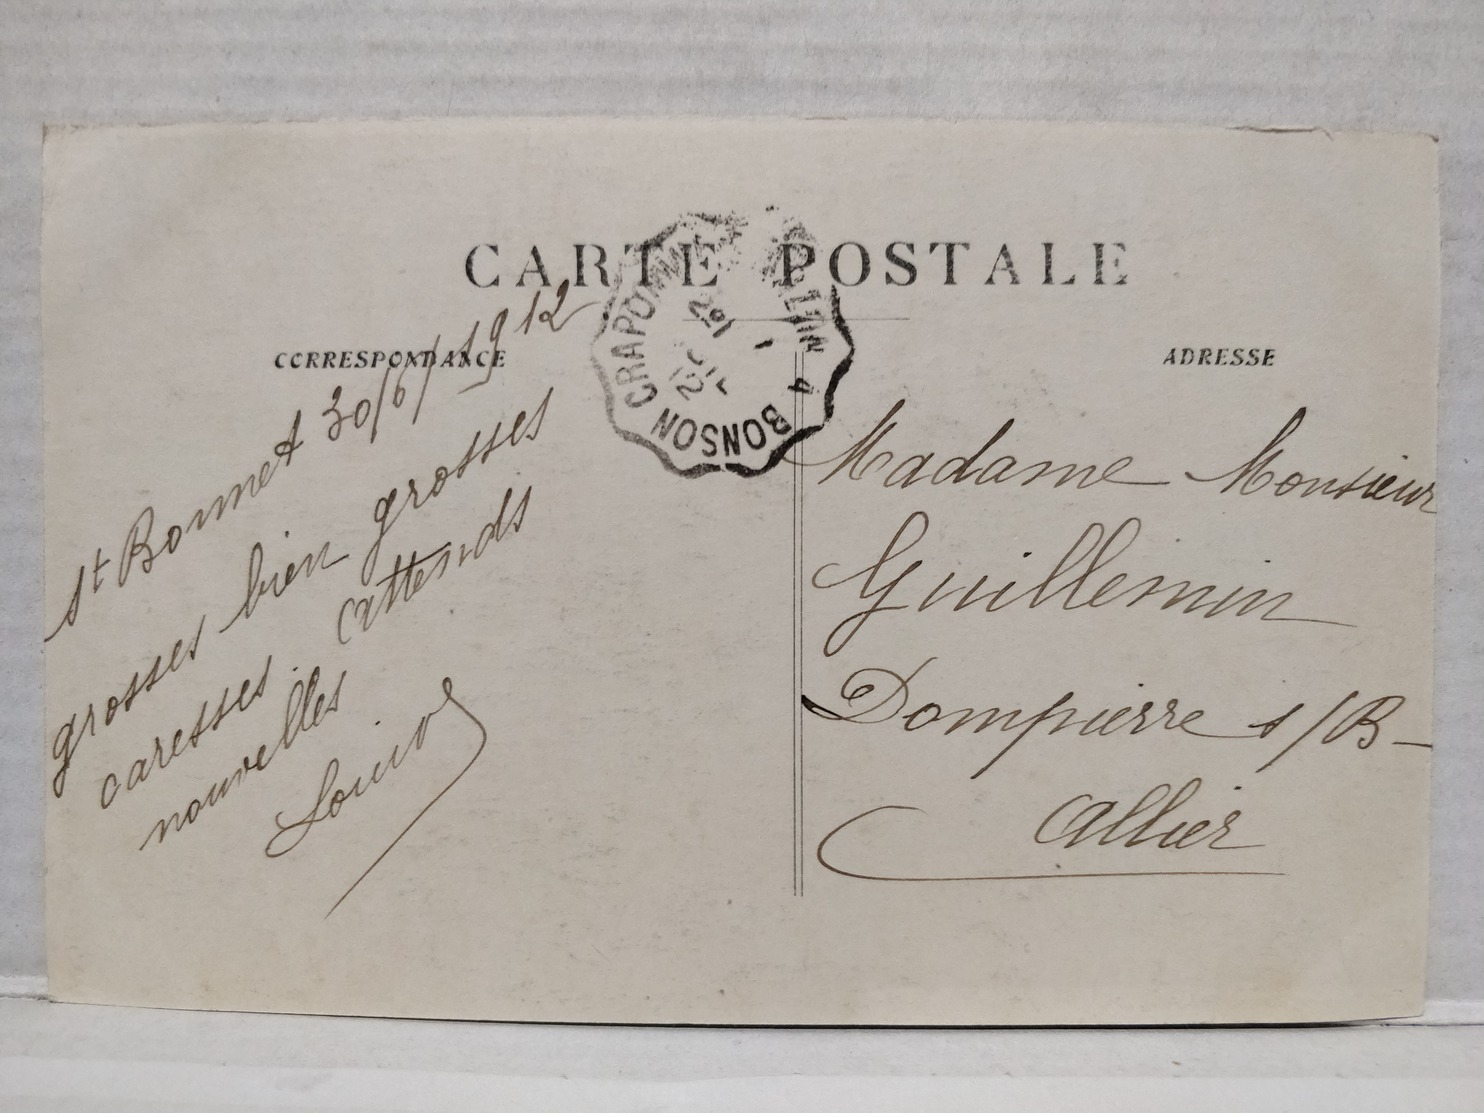 CARTE POSTALE
CORRESPONDANCE
ADRESSE
CRAPONNE
4 BONSON
St Bonnet 30/6/1912
grosses bien grosses
caresses. Attends
nouvelles
Madame Monsieur
Guillemin
Dompierre s/B-
Allier